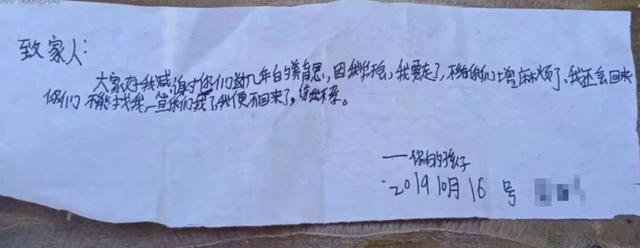 致家人：
大家好我感谢你们这九年白的养育恩，因我，我要走了，不给你们增麻烦了，我还会回来
你们不能找我，一旦你们找了我便不回来了，
——你的孩子
2019 10月16号